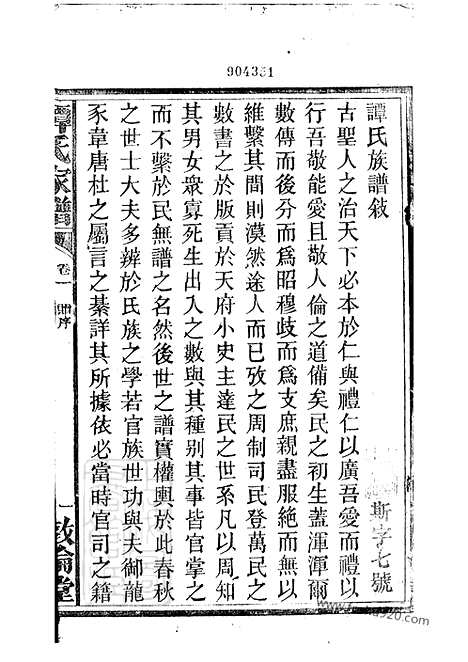 904351
斯字七號
譚氏族譜敍
古聖人之治天下必本於仁與禮仁以廣吾愛而禮以
行吾敬能愛且敬人倫之道備矣民之初生蓋渾渾爾
數傳而後分而爲昭穆歧而爲支庶親盡服絶而無以
維繫其間則漠然途人而已攷之周制司民登萬民之
數書之於版貢於天府小史主達民之世系凡以周知
其男女衆寡死生出入之數與其種别其事皆官掌之
而不繫於民無譜之名然後世之譜實權輿於此春秋
之世士大夫多辨於氏族之學若官族世功與夫御龍
豕韋唐杜之屬言之綦詳其所據依必當時官司之籍
譚氏家譜
卷一
序
一
敦倫堂